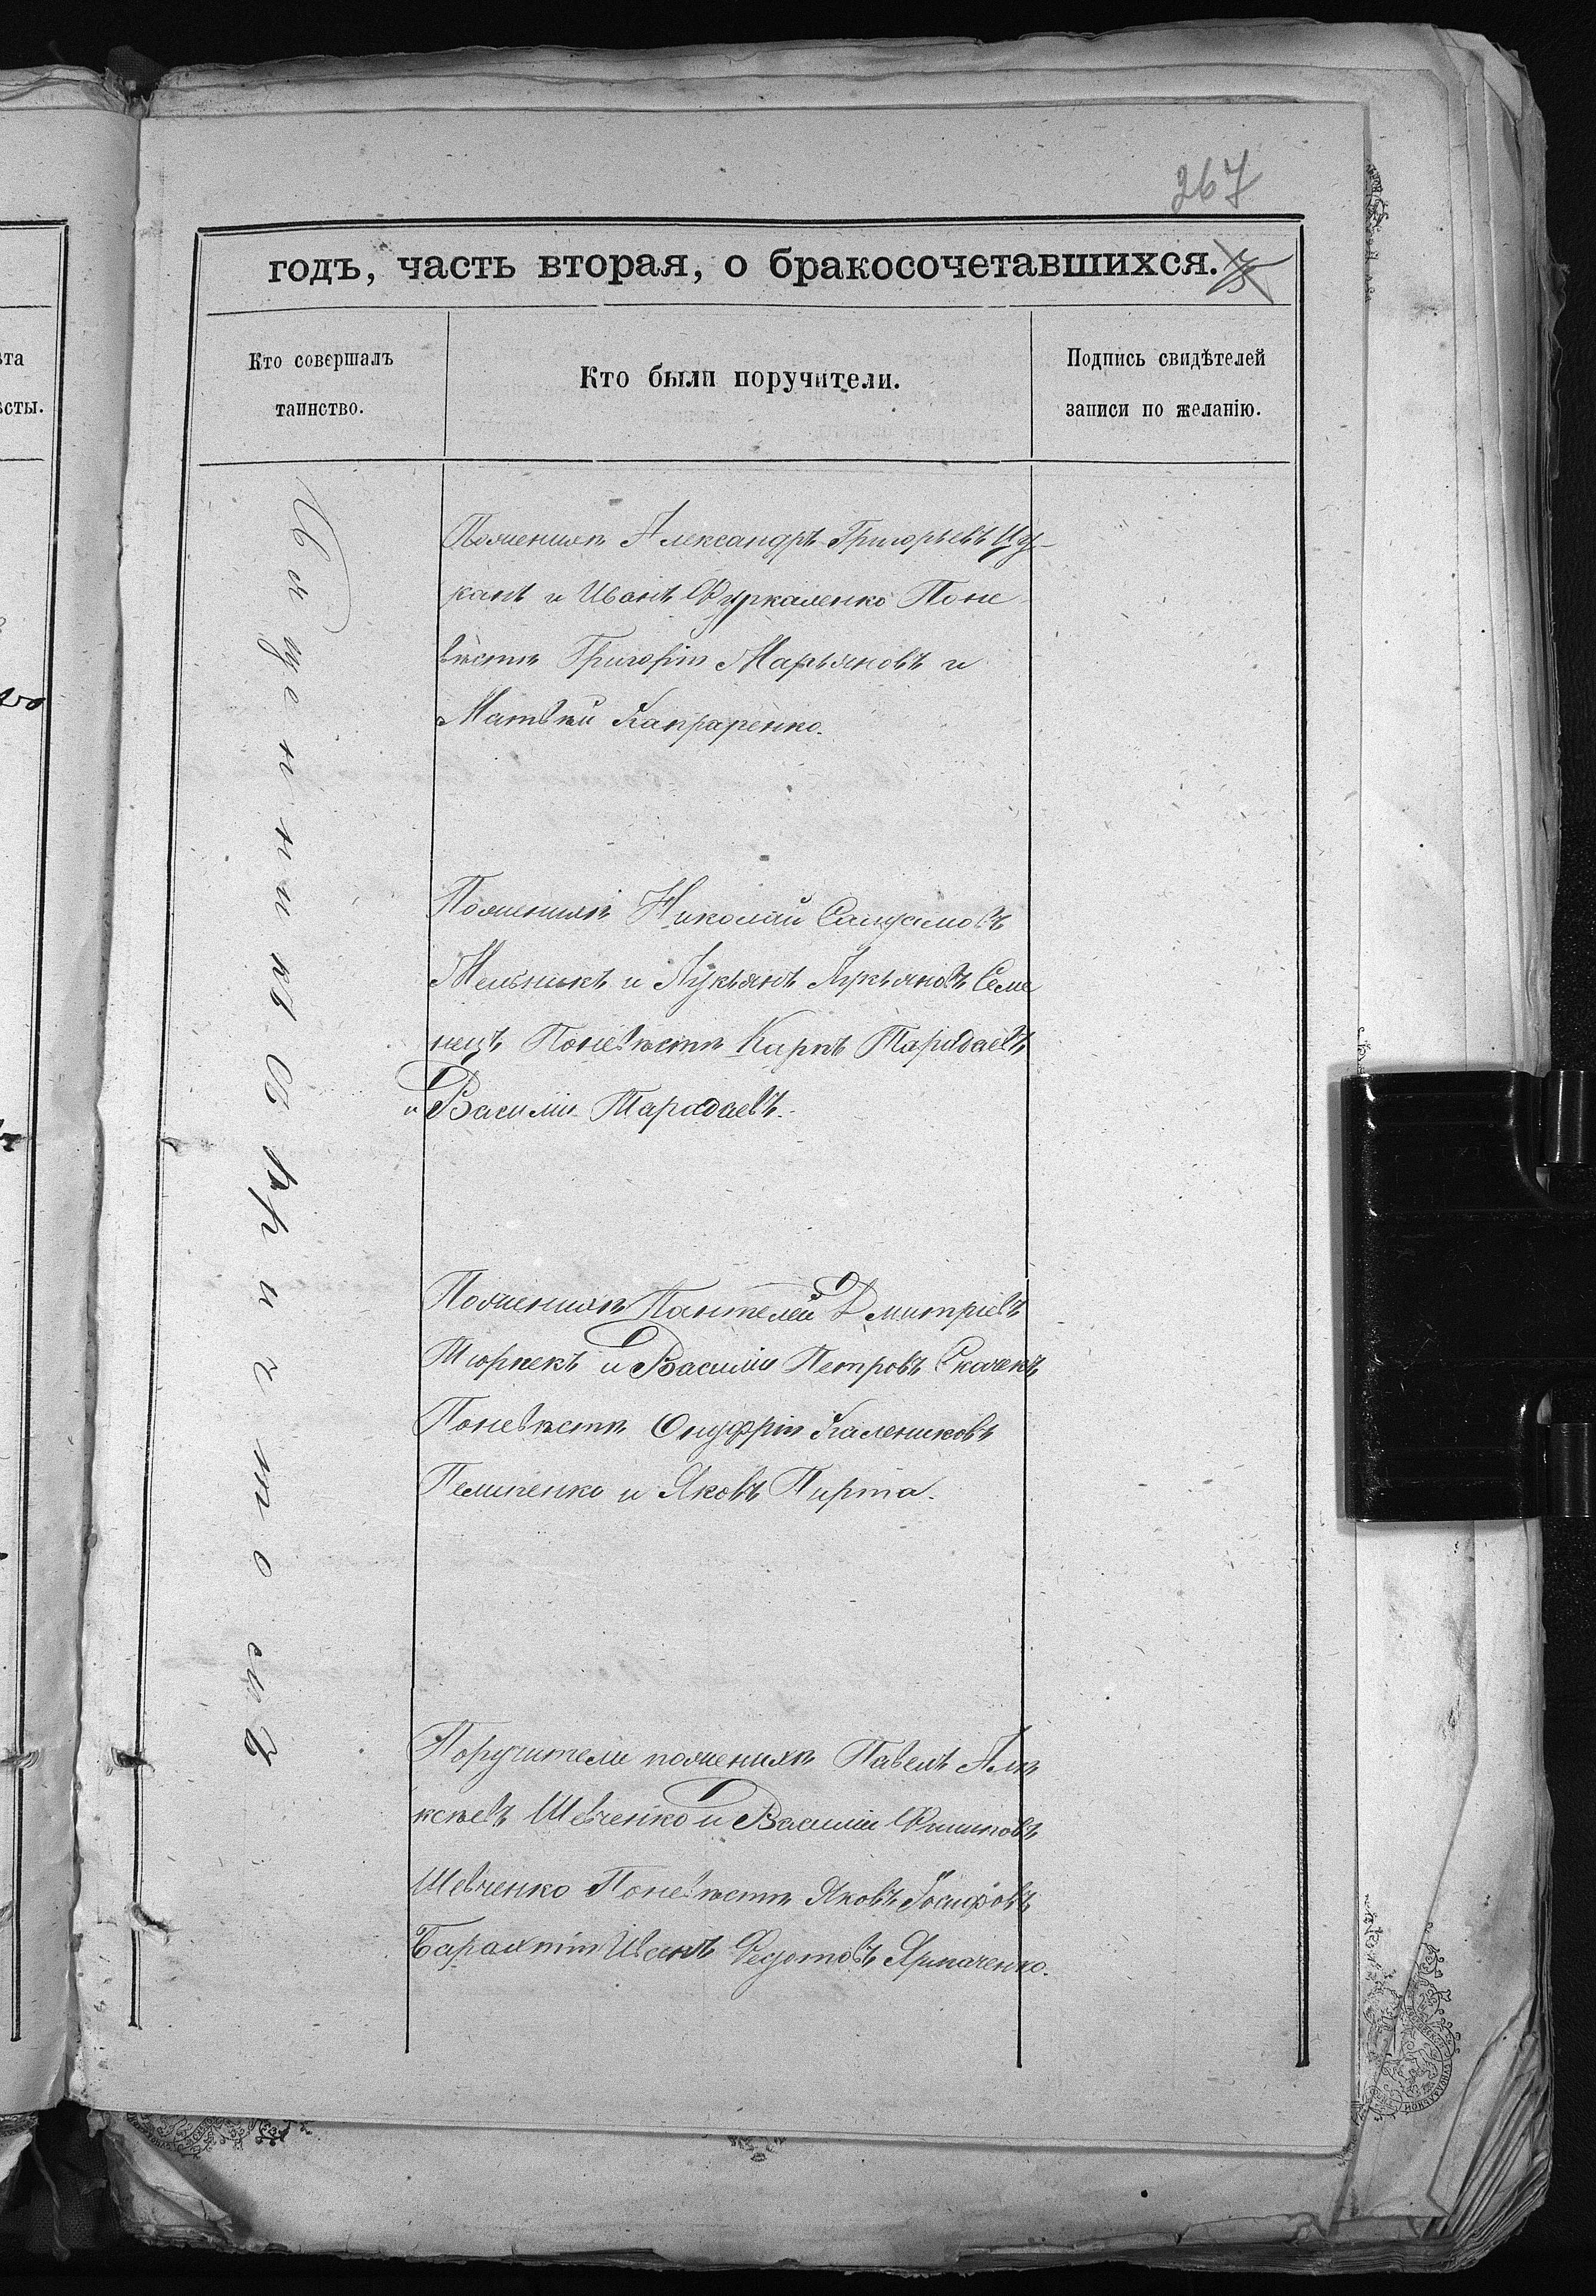 267
годъ, часть вторая, о бракосочетавшихся.
Кто совершалъ
таинство.
Кто были поручители.
Подпись свидѣтелей
записи по желанію.
ѣта
ѣсты.
Священникъ
Поженихѣ Александръ Григорьевъ Цу-
канъ и Иванъ Фуркаленко Поне
вѣстѣ Григорій Марьяновъ и
Матвѣй Капраренко.
Поженихѣ Николай
Мельникъ и Лукьянъ Лукьяновъ Семе
нецъ Поневѣстѣ Карпъ Тарадаевъ
и Василій Тарадаевъ.
Поженихѣ Пантелей Дмитріевъ
Тюрпекъ и Василій Петровъ Скаченъ
Поневѣстѣ Онуфрій Калениковъ
Пелипенко и Яковъ Пирта.
Поручители поженихѣ Павелъ Але
ксѣевъ Шевченко и Василій Филиповъ
Шевченко Поневѣстѣ Яковъ Іосифовъ
Иванъ Федотовъ Ярмаченко.